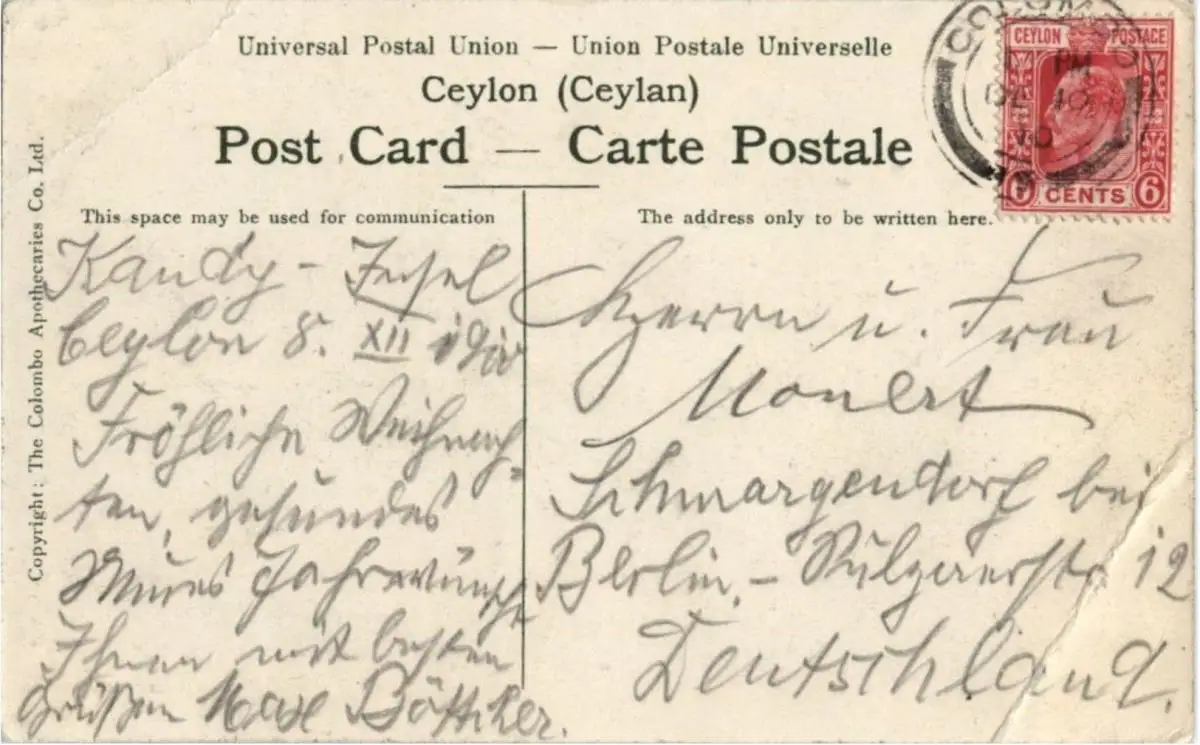 Universal Postal Union — Union Postale Universelle
Ceylon (Ceylan)
Post Card — Carte Postale
This space may be used for communication
The address only to be written here.
Copyright: The Colombo Apothecaries Co. Ltd.
COLOMBO
PM
10
CEYLON POSTAGE
6 CENTS 6
Kandy - Insel
Ceylon 8. XII 1910
Fröhliche Weihnach-
ten, gesundes
Neues Jahr wünscht
Ihnen mit besten
Grüßen Max Böttcher.
Herrn u. Frau
Schmargendorf bei
Berlin. - 12
Deutschland.